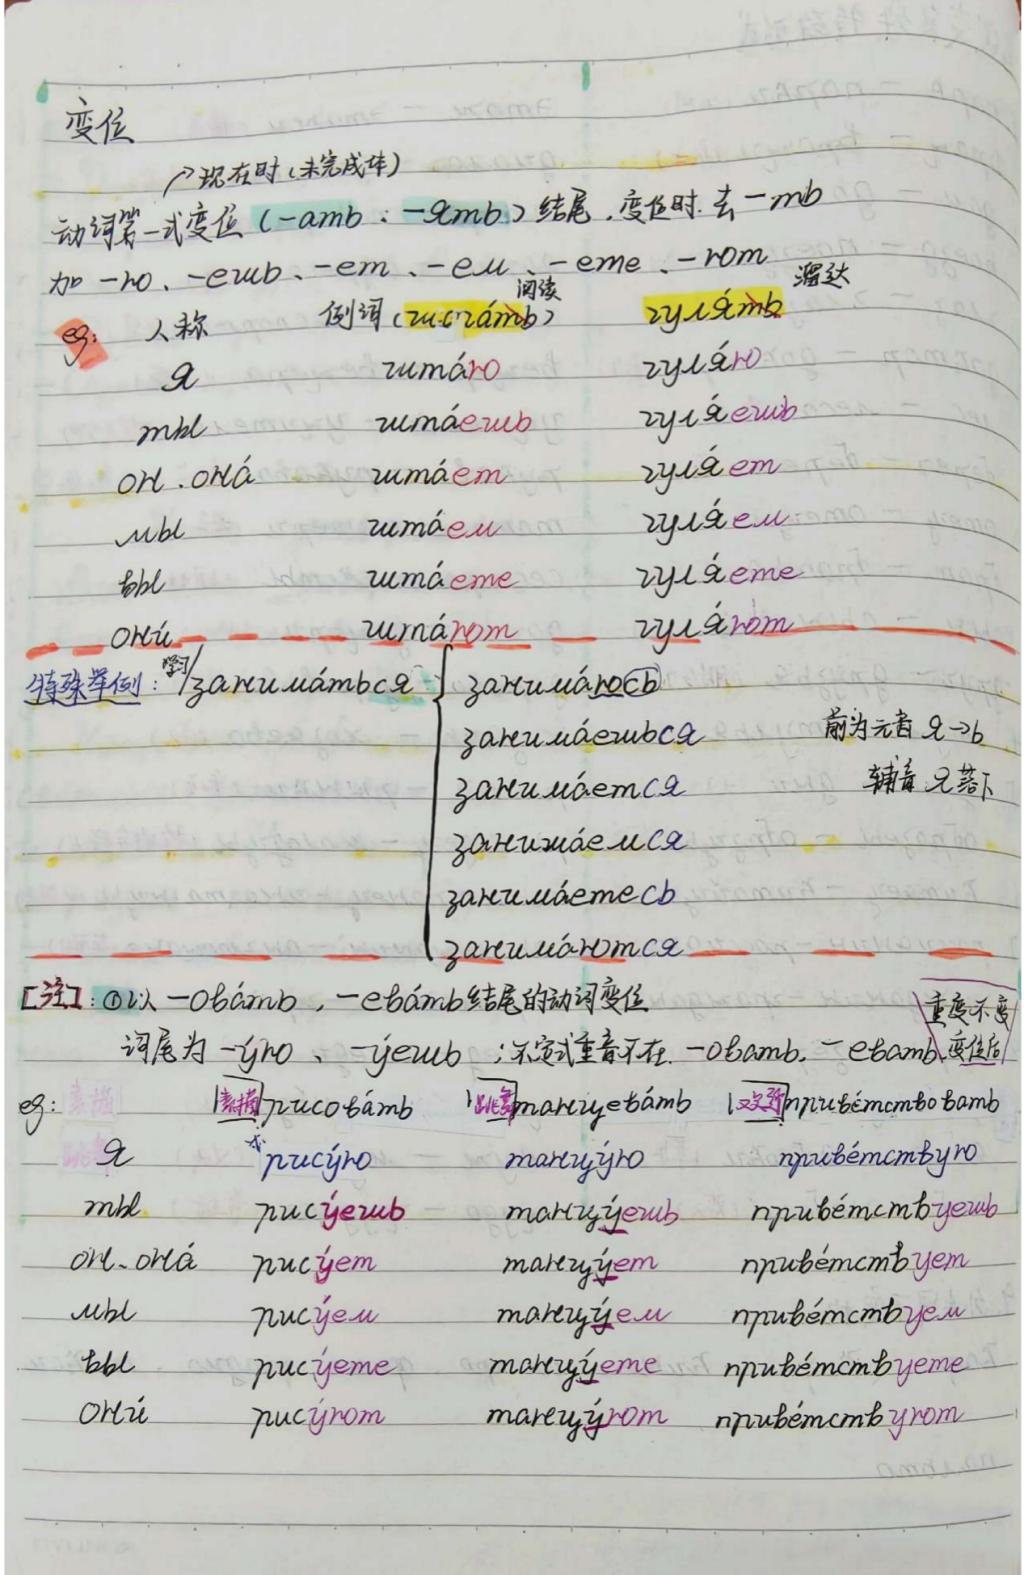 变位
↗现在时(未完成体)
动词第一式变位(-ать、-ять)结尾,变位时.去-ть
加-ю、-ешь、-ет、-ем、-ете、-ют
阅读 溜达
eg: 人称 例词(читáть) гуля́ть
я читáю гуля́ю
ты читáешь гуля́ешь
он.онá читáет гуля́ет
мы читáем гуля́ем
вы читáете гуля́ете
они́ читáют гуля́ют
特殊举例: 学习/занимáться { занимáюсь
занимáешься 前为元音 я→ь
занимáется 辅音 я落下
занимáемся
занимáетесь
занимáются
[注]: ①以-овáть,-евáть结尾的动词变位 重度不变
词尾为-у́ю、-у́ешь;不定式重音不在.-овать.-евать.变位后
eg: 素描рисовáть 跳舞танцевáть 欢迎приве́тствовать
я рису́ю танцу́ю приве́тствую
ты рису́ешь танцу́ешь приве́тствуешь
он、онá рису́ет танцу́ет приве́тствует
мы рису́ем танцу́ем приве́тствуем
вы рису́ете танцу́ете приве́тствуете
они́ рису́ют танцу́ют приве́тствуют